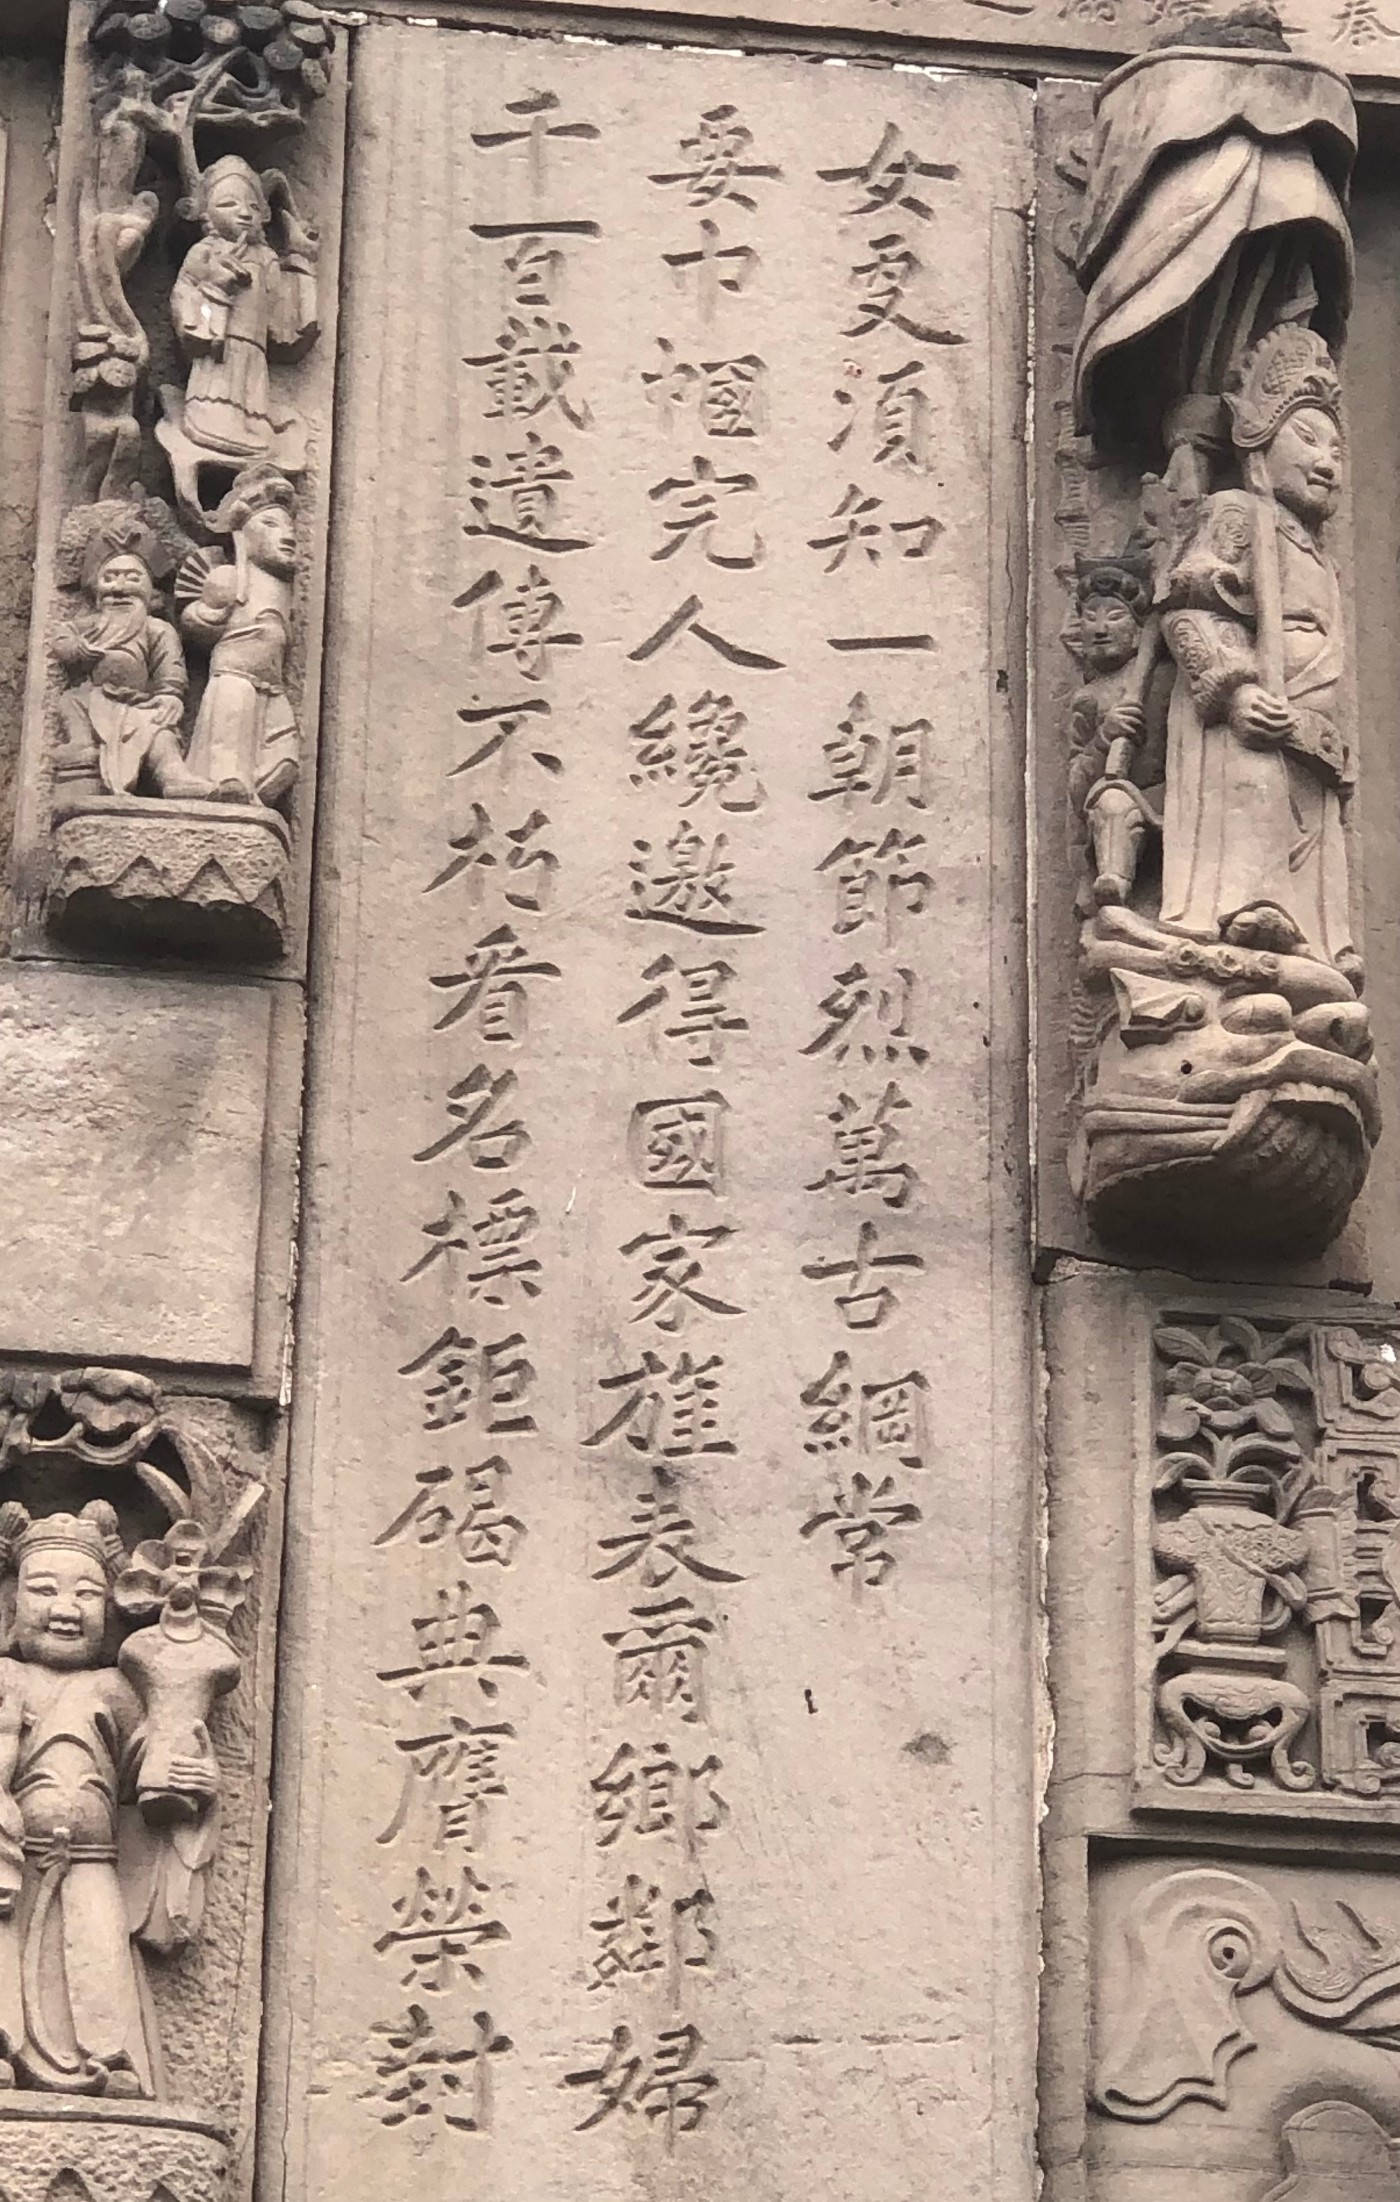 千百載遺傳不朽看名標鉅碣典膺榮封
要巾幗完人纔邀得國家旌表爾鄉鄰婦
女更須知一朝節烈萬古綱常